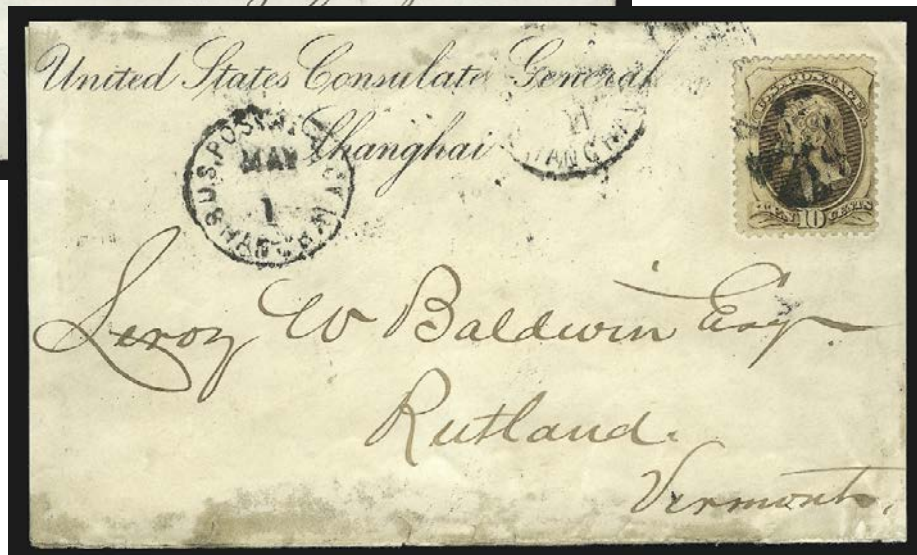 United States Consulate General
Shanghai
U.S. POSTAL AGCY
MAY
1
SHANGHAI
11
SHANGHAI
U.S. POSTAGE
TEN 10 CENTS
Leroy W Baldwin Esq
Rutland.
Vermont.